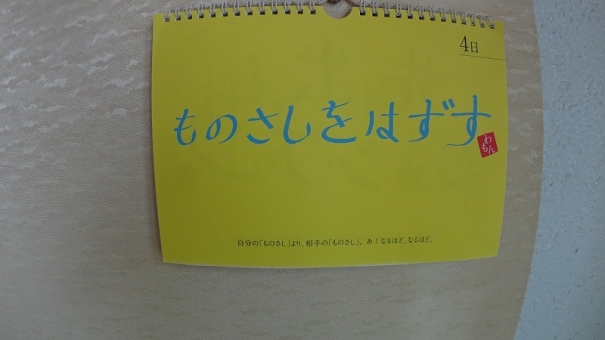 4日
ものさしをはずす
自分の「ものさし」より、相手の「ものさし」、あ！なるほど、なるほど。